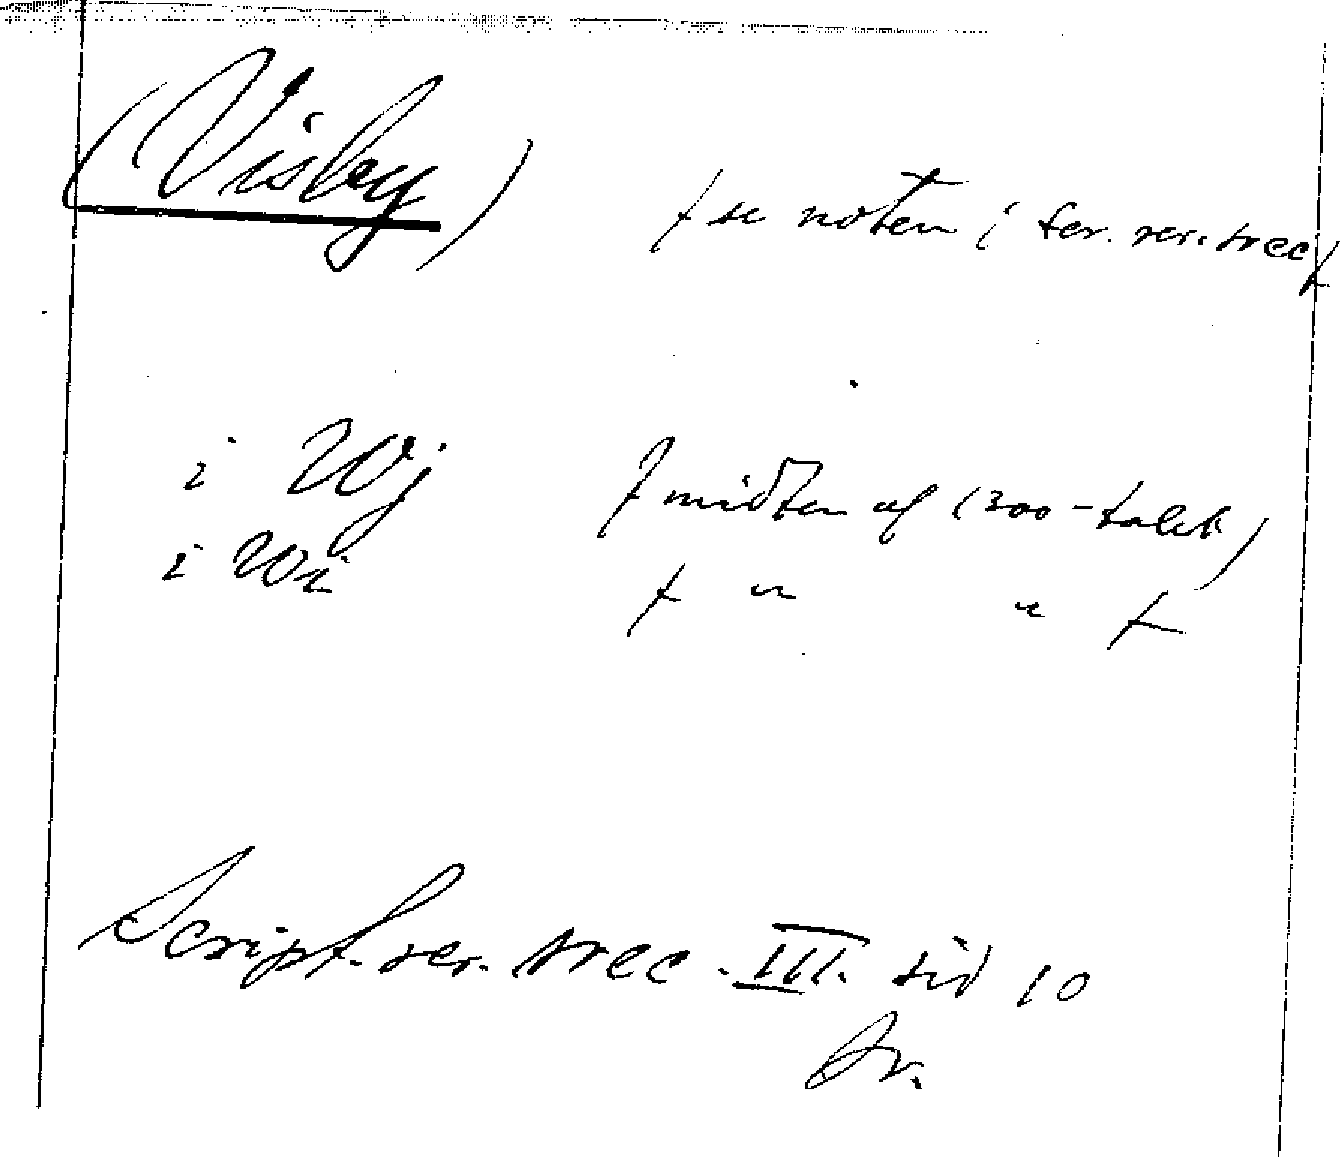 (Visby) (se noten i scr. rer. svec)
i Wj (midten af 1300-talet)
i Wi ( " " )
Script. rer. svec. III. sid 10